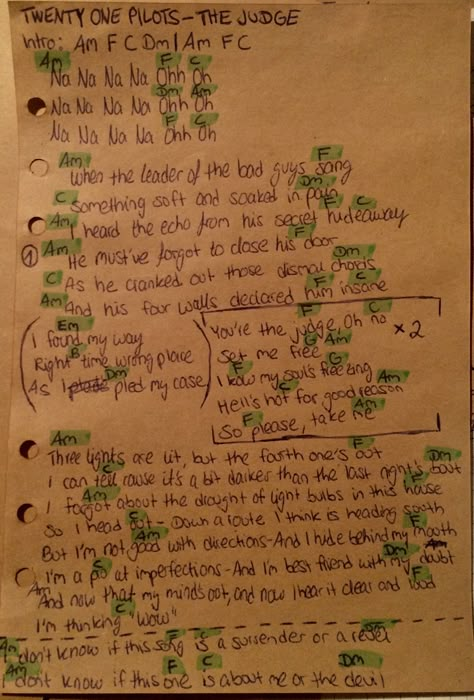 TWENTY ONE PILOTS - THE JUDGE
Intro: Am F C Dm | Am F C
Am F C
Na Na Na Na Ohh Oh
Dm Am
Na Na Na Na Ohh Oh
F C
Na Na Na Na Ohh Oh
Am F
When the leader of the bad guys sang
C Dm
Something soft and soaked in pain
Am F C
I heard the echo from his secret hideaway
Am F
① He must've forgot to close his door
C Dm
As he cranked out those dismal chords
Am F C
And his four walls declared him insane
Em
I found my way
B
Right time wrong place
Dm
As I pled my case
F C
You're the judge, Oh no x2
G Am
Set me free
F G
I know my soul's freezing
C Am
Hell's hot for good reason
F Am
So please, take me
Am F
Three lights are lit, but the fourth one's out
C Dm
I can tell cause it's a bit darker than the last night's bout
Am F
I forgot about the drought of light bulbs in this house
C
So I head out - Down a route I think is heading south
Am F
But I'm not good with directions - And I hide behind my mouth
C Dm
I'm a pro at imperfections - And I'm best friend with my doubt
Am F
And now that my mind's out, and now I hear it clear and loud
C
I'm thinking "wow"
Am F C Dm
I don't know if this song is a surrender or a revel
Am F C Dm
I don't know if this one is about me or the devil